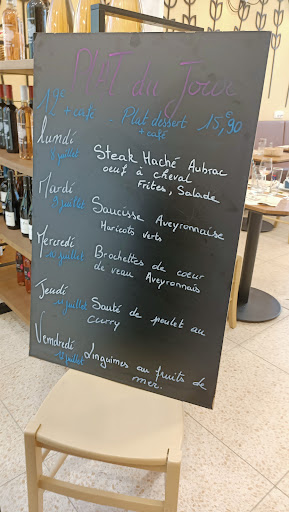 Plât du Jour
+ café = Plat dessert 15,90
+ café
Lundi
8 juillet
Steak Haché Aubrac
oeuf à cheval
Frites, Salade
Mardi
9 juillet
Saucisse Aveyronnaise
Haricots verts
Mercredi
10 juillet
Brochettes de coeur
de veau Aveyronnais
Jeudi
11 juillet
Sauté de poulet au
curry
Vendredi
12 juillet
Linguines au fruits de
mer.